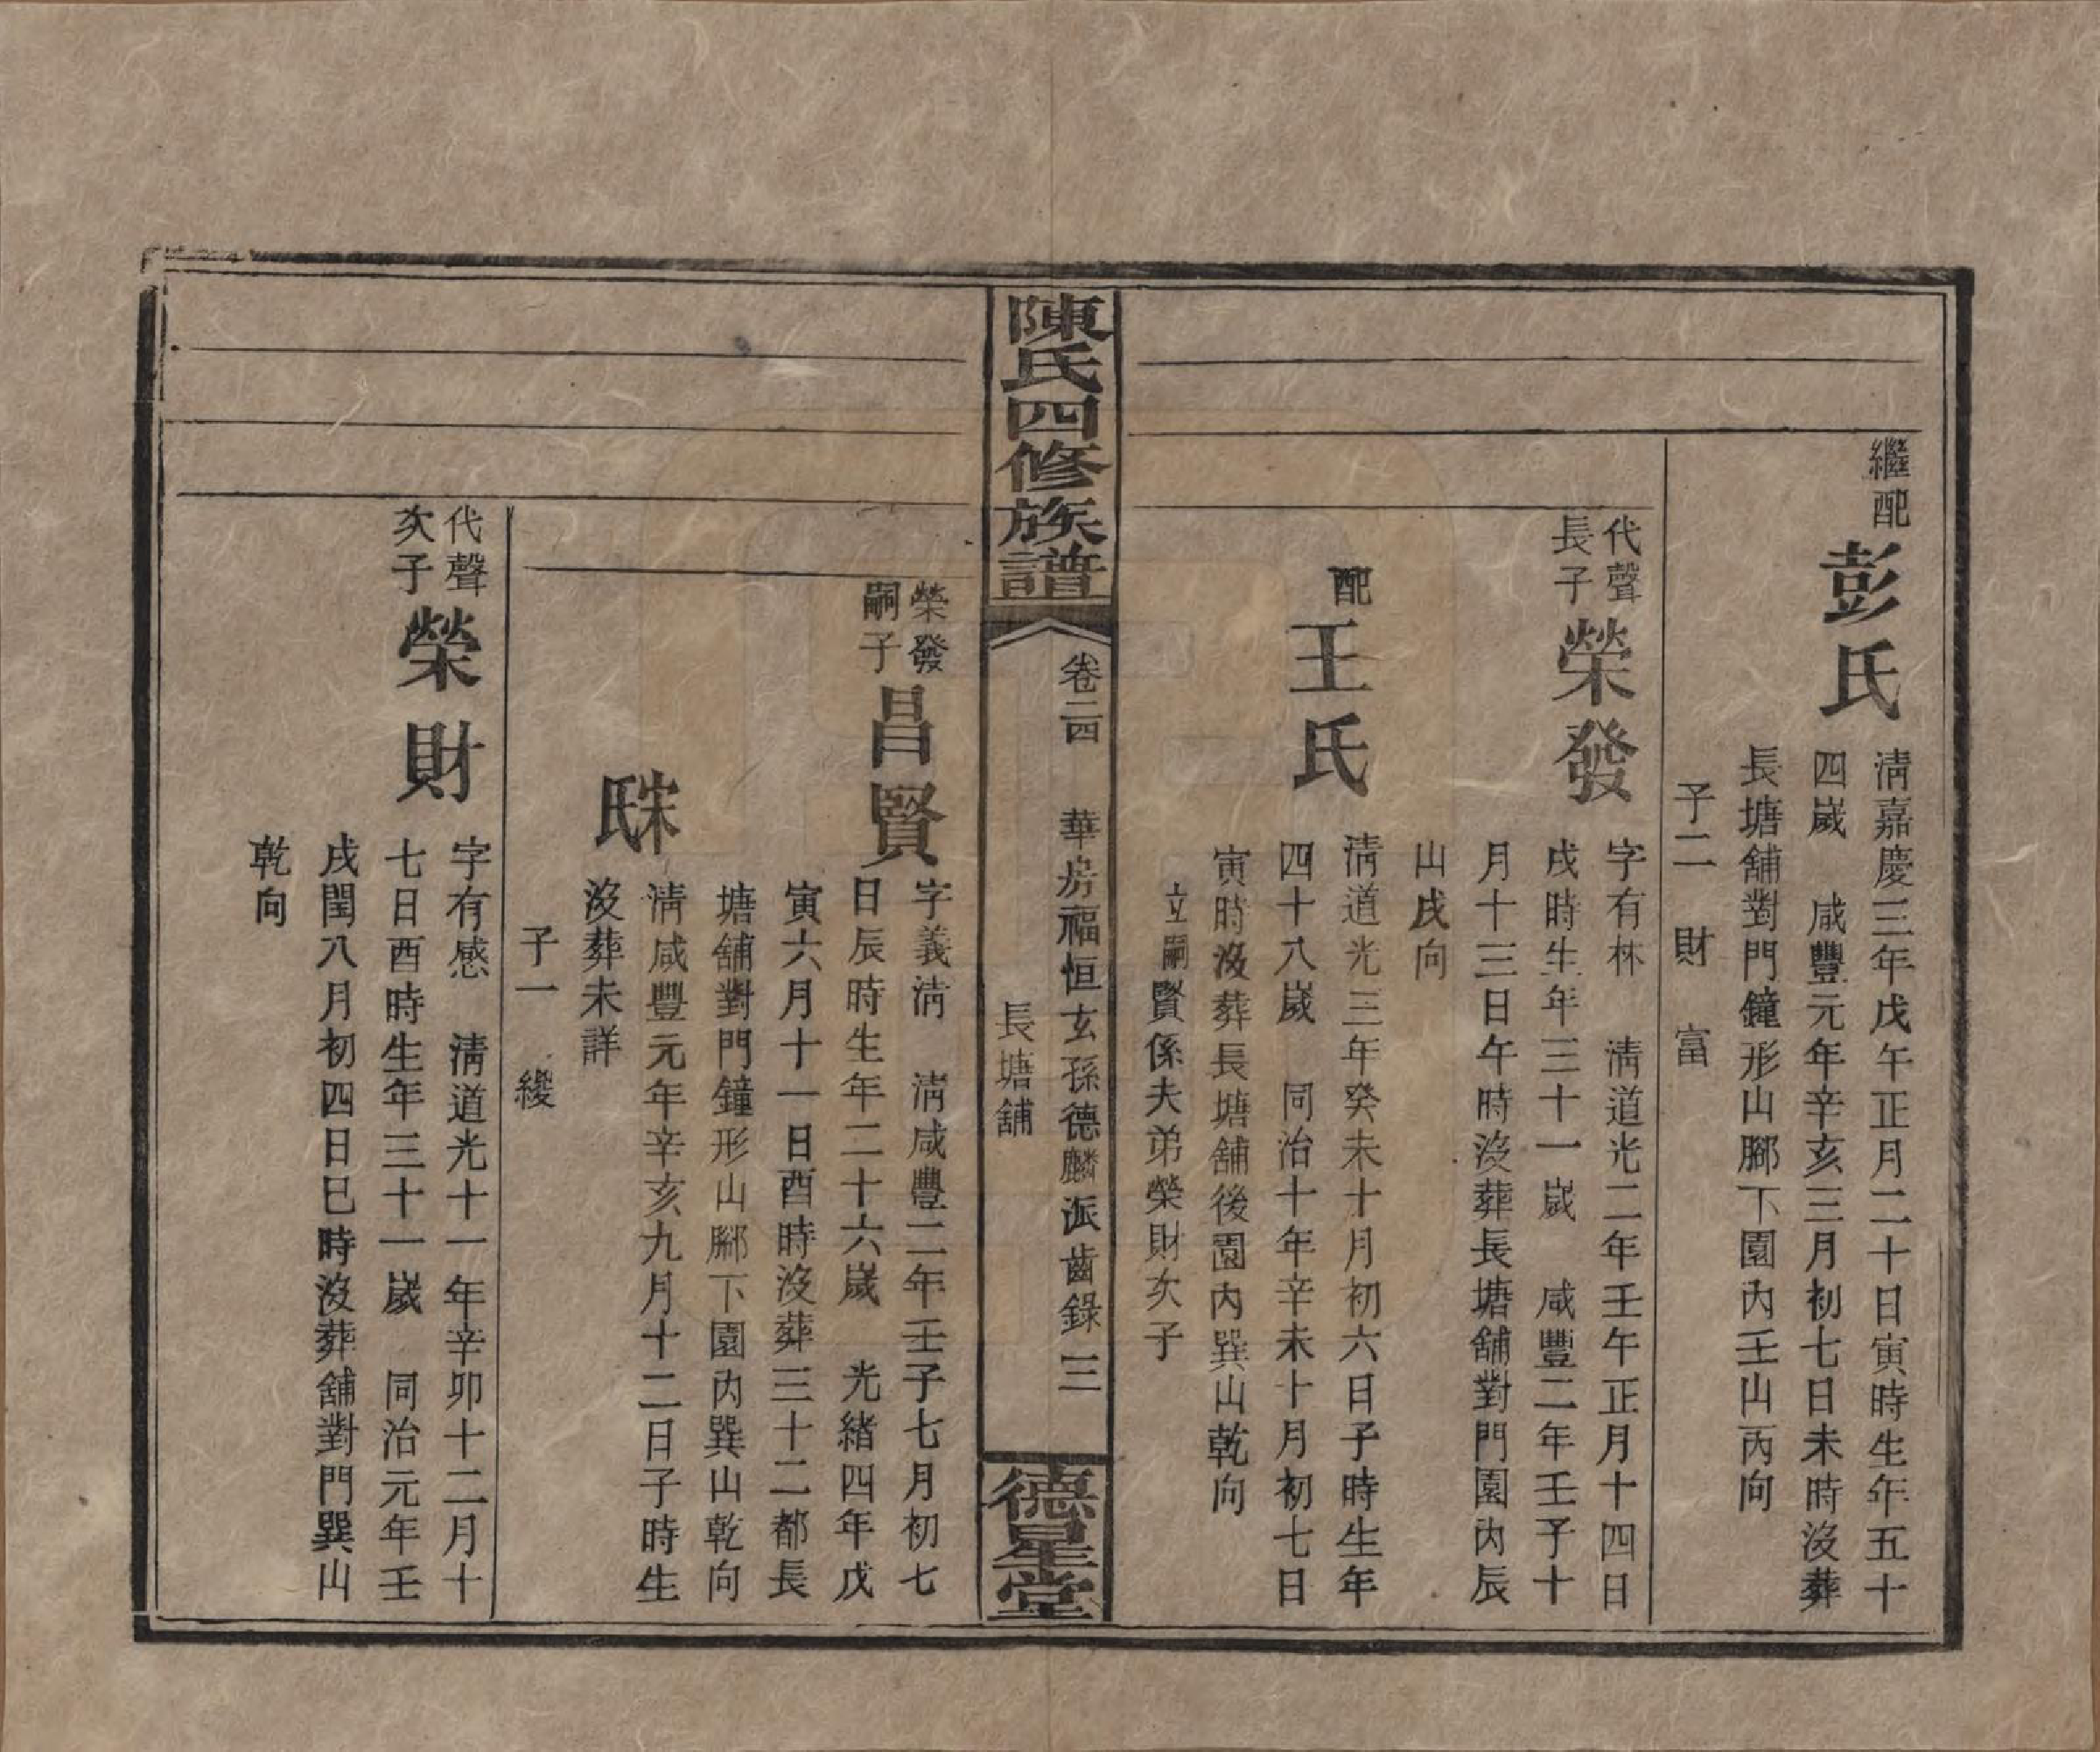 繼配
彭氏
淸嘉慶三年戊午正月二十日寅時生年五十
四嵗 咸豐元年辛亥三月初七日未時沒葬
長塘舖對門鐘形山腳下園內壬山丙向
子二 財 富
代聲
長子
榮發
字有林 淸道光二年壬午正月十四日
戌時生年三十一嵗 咸豐二年壬子十
月十三日午時沒葬長塘舖對門園內辰
山戌向
配
王氏
淸道光三年癸未十月初六日子時生年
四十八嵗 同治十年辛未十月初七日
寅時沒葬長塘舖後園內巽山乾向
立嗣賢係夫弟榮財次子
陳氏四修族譜
卷二四 華房福恒玄孫德麟派齒錄 三
長塘舖
德星堂
榮發
嗣子
昌賢
字義淸 淸咸豐二年壬子七月初七
日辰時生年二十六嵗 光緖四年戊
寅六月十一日酉時沒葬三十二都長
塘舖對門鐘形山腳下園內巽山乾向
宋氏
淸咸豐元年辛亥九月十二日子時生
沒葬未詳
子一 纓
代聲
次子
榮財
字有感 淸道光十一年辛卯十二月十
七日酉時生年三十一嵗 同治元年壬
戌閏八月初四日巳時沒葬舖對門巽山
乾向